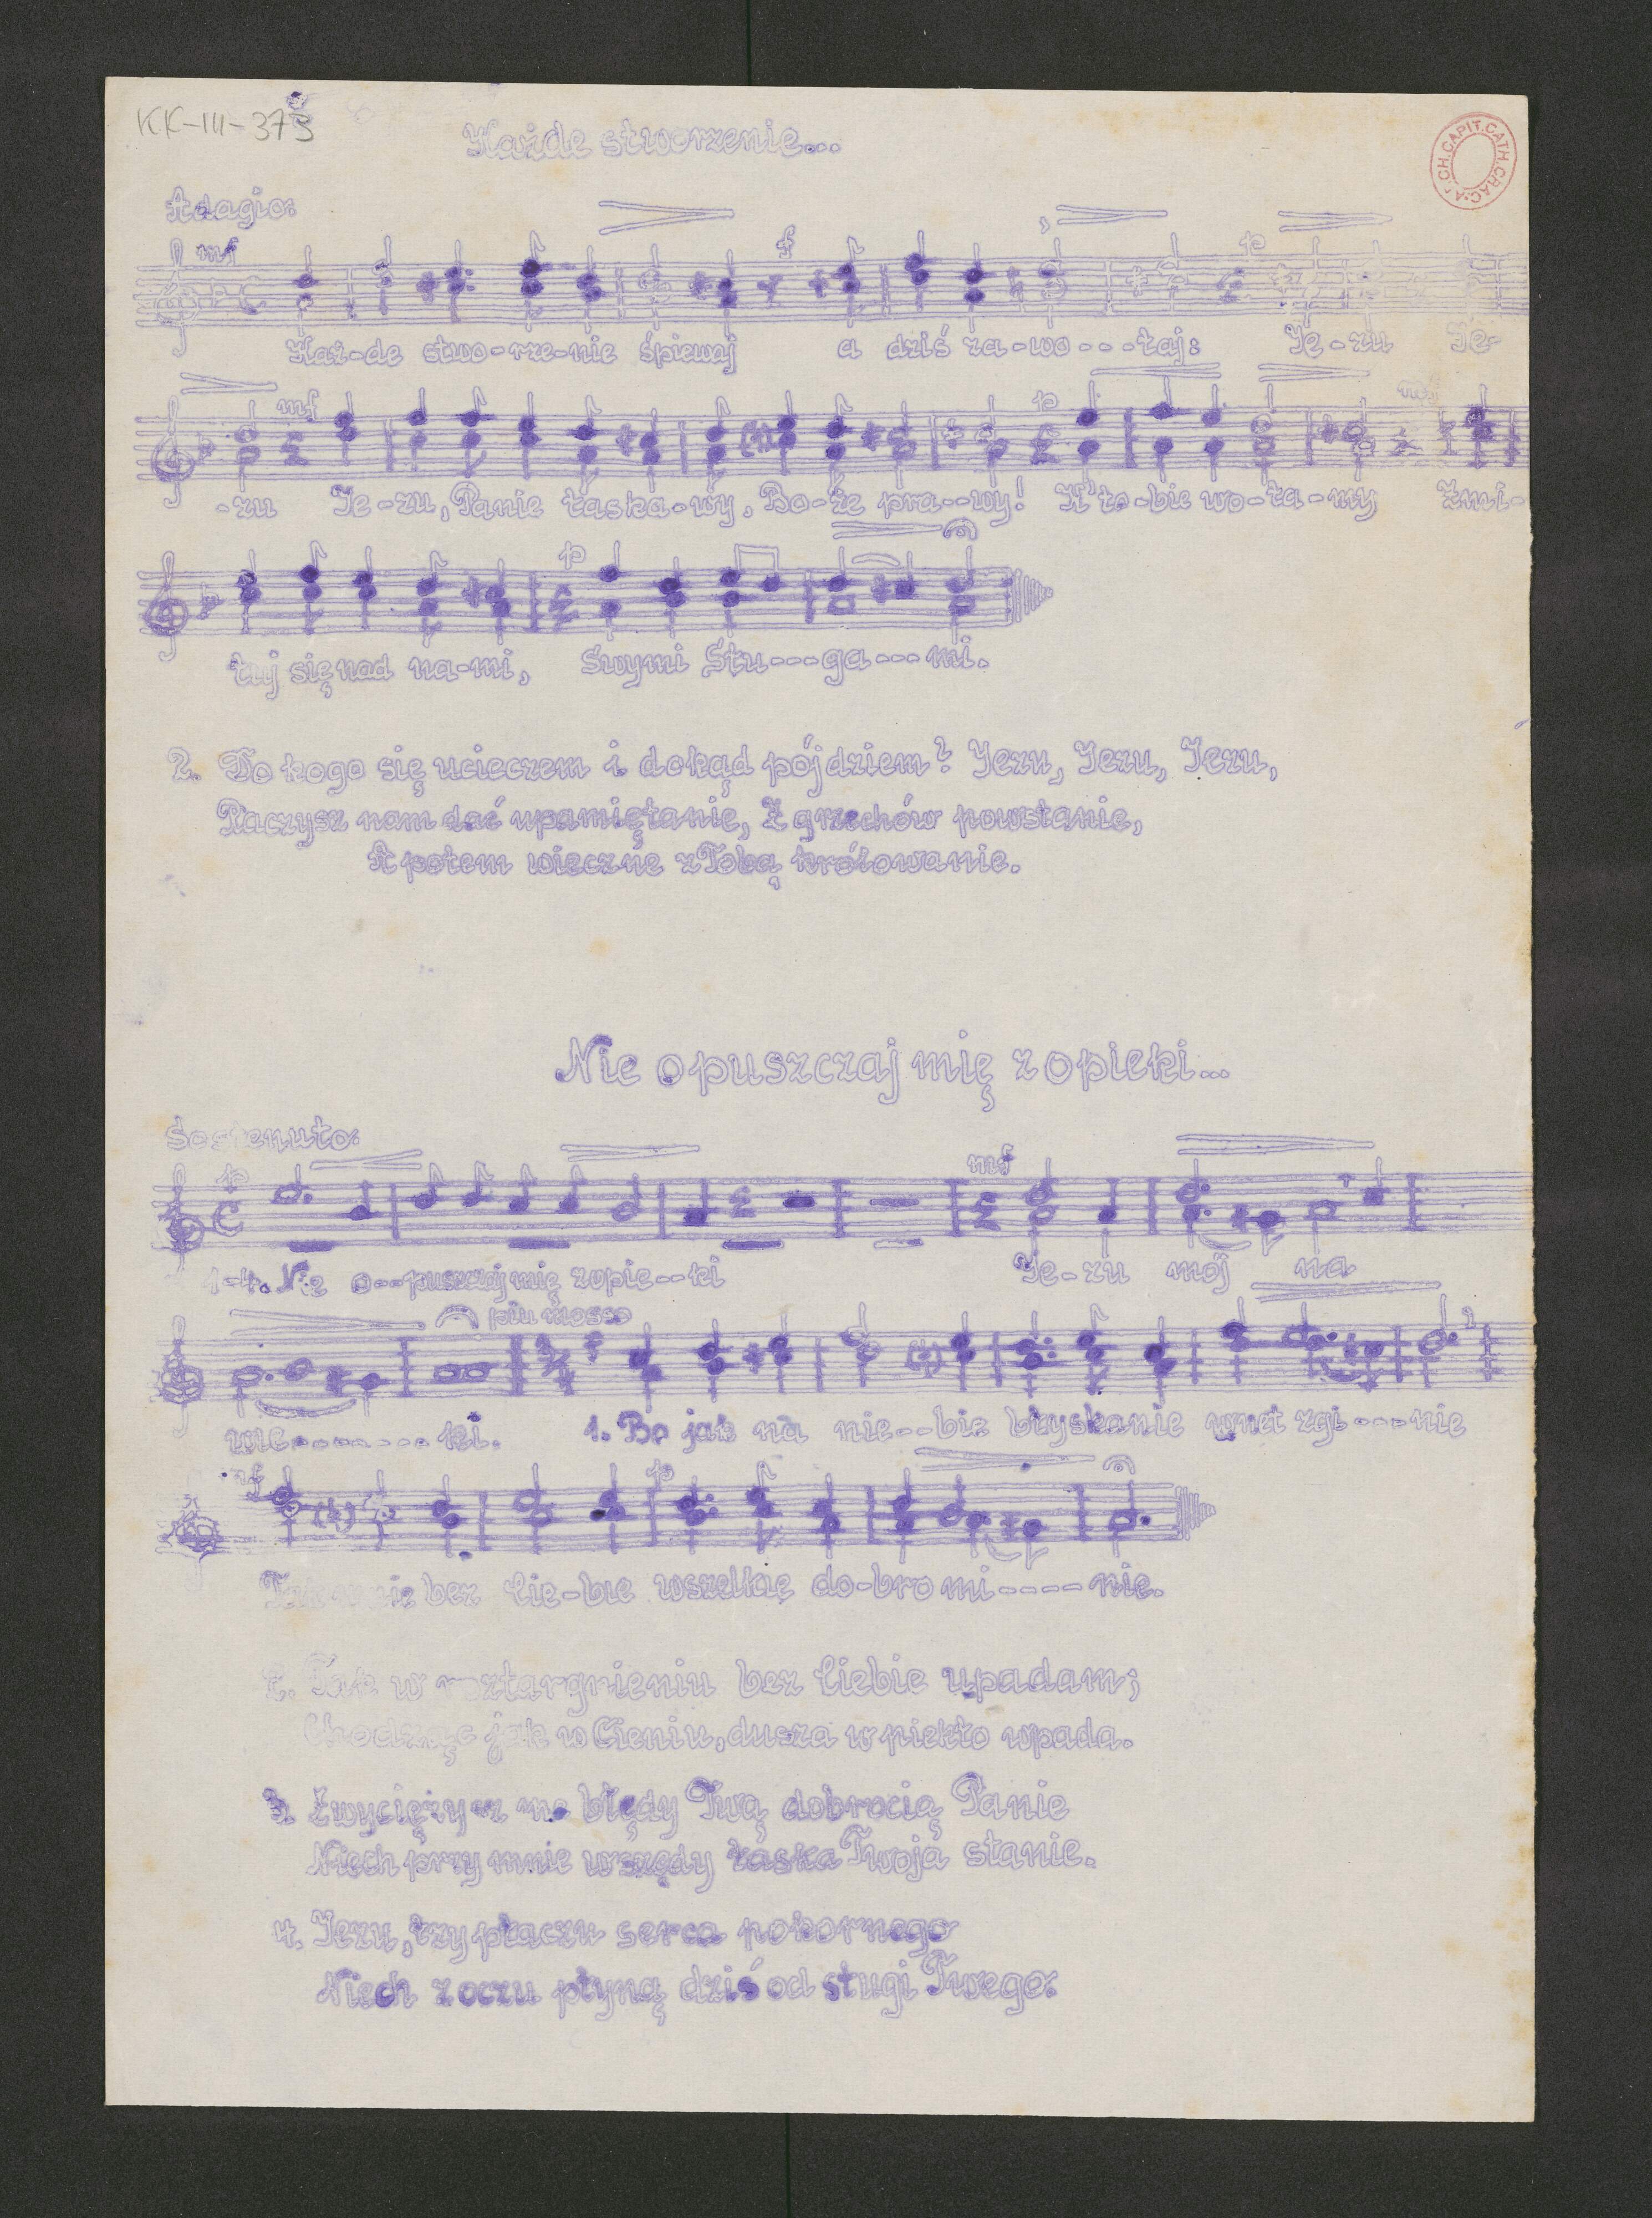 KK-III-375
ARCH.CAPIT.CATH.CRAC.
Każde stworzenie...
Adagio.
mf f p
Każ-de stwo-rze-nie śpiewaj a dziś za-wo---łaj: Je-zu Je-
mf p mf
-zu Je-zu, Panie łaska-wy, Bo-że pra--wy! K'to-bie wo-ła-my Zmi-
p
łuj się nad na-mi, Swymi Słu---ga---mi.
2. Do kogo się ucieczem i dokąd pójdziem? Jezu, Jezu, Jezu,
Raczysz nam dać upamiętanie, Z grzechów powstanie,
A potem wieczne z Tobą królowanie.
Nie opuszczaj mię z opieki...
Sostenuto.
p mf
1-4. Nie o--puszczaj mię zopie--ki Je-zu mój na
più mosso
wie-------ki. 1. Bo jak na nie--bie błyskanie wnet zgi---nie
f p
bez Cie-bie wszelkie do-bro mi----nie.
2. Tak w roztargnieniu bez Ciebie upadam;
Chodząc jak w Cieniu, dusza w piekło wpada.
3. Zwyciężysz me błędy Twą dobrocią Panie
Niech przy mnie wszędy łaska Twoja stanie.
4. Jezu, łzy płaczu serca pokornego
Niech z oczu płyną dziś od sługi Twego.